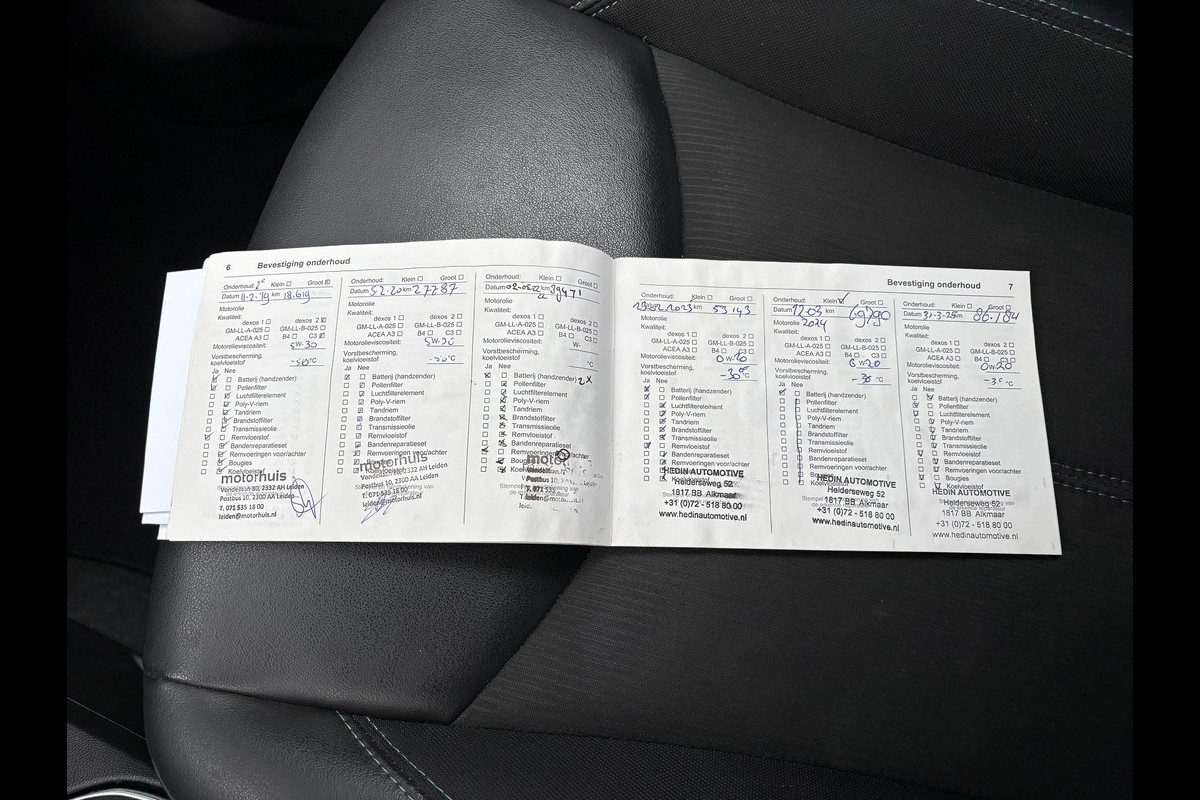 6 Bevestiging onderhoud
Onderhoud: 2e Klein Groot
Datum 11-2-'19 km 18.619
Motorolie
Kwaliteit:
dexos 1 dexos 2
GM-LL-A-025 GM-LL-B-025
ACEA A3 B4 C3
Motorolieviscositeit:
5W-30
Vorstbescherming,
koelvloeistof °C
Ja Nee
Batterij (handzender)
Pollenfilter
Luchtfilterelement
Poly-V-riem
Tandriem
Brandstoffilter
Transmissieolie
Remvloeistof
Bandenreparatieset
Remvoeringen voor/achter
Bougies
Koelvloeistof
motorhuis
Vondellaan 80, 2332 AH Leiden
Postbus 10, 2300 AA Leiden
T. 071 535 18 00
leiden@motorhuis.nl
Onderhoud: Klein Groot
Datum 5-2-20 km 27787
Motorolie
Kwaliteit:
dexos 1 dexos 2
GM-LL-A-025 GM-LL-B-025
ACEA A3 B4 C3
Motorolieviscositeit:
5W-30
Vorstbescherming,
koelvloeistof °C
Ja Nee
Batterij (handzender)
Pollenfilter
Luchtfilterelement
Poly-V-riem
Tandriem
Brandstoffilter
Transmissieolie
Remvloeistof
Bandenreparatieset
Remvoeringen voor/achter
Bougies
Koelvloeistof
motorhuis
Vondellaan 80, 2332 AH Leiden
Postbus 10, 2300 AA Leiden
T. 071 535 18 00
leiden@motorhuis.nl
Onderhoud: Klein Groot
Datum km 39471
Motorolie
Kwaliteit:
dexos 1 dexos 2
GM-LL-A-025 GM-LL-B-025
ACEA A3 B4 C3
Motorolieviscositeit:
W-
Vorstbescherming,
koelvloeistof °C
Ja Nee
Batterij (handzender) 2x
Pollenfilter
Luchtfilterelement
Poly-V-riem
Tandriem
Brandstoffilter
Transmissieolie
Remvloeistof
Bandenreparatieset
Remvoeringen voor/achter
Bougies
Postbus 10,
T. 071 535
Bevestiging onderhoud 7
Onderhoud: Klein Groot
2023 km 53143
Motorolie
Kwaliteit:
dexos 1 dexos 2
GM-LL-A-025 GM-LL-B-025
ACEA A3 B4 C3
Motorolieviscositeit:
Vorstbescherming,
koelvloeistof -30 °C
Ja Nee
Batterij (handzender)
Pollenfilter
Luchtfilterelement
Poly-V-riem
Tandriem
Brandstoffilter
Transmissieolie
Remvloeistof
Bandenreparatieset
Remvoeringen voor/achter
Bougies
Koelvloeistof
HEDIN AUTOMOTIVE
Helderseweg 52
1817 BB Alkmaar
+31 (0)72 - 518 80 00
www.hedinautomotive.nl
Onderhoud: Klein Groot
Datum 12.03 km 69790
Motorolie 2024
Kwaliteit:
dexos 1 dexos 2
GM-LL-A-025 GM-LL-B-025
ACEA A3 B4 C3
Motorolieviscositeit:
0W20
Vorstbescherming,
koelvloeistof -30 °C
Ja Nee
Batterij (handzender)
Pollenfilter
Luchtfilterelement
Poly-V-riem
Tandriem
Brandstoffilter
Transmissieolie
Remvloeistof
Bandenreparatieset
Remvoeringen voor/achter
Bougies
Koelvloeistof
HEDIN AUTOMOTIVE
Helderseweg 52
1817 BB Alkmaar
+31 (0)72 - 518 80 00
www.hedinautomotive.nl
Onderhoud: Klein Groot
Datum 31-3-25 km 86.784
Motorolie
Kwaliteit:
dexos 1 dexos 2
GM-LL-A-025 GM-LL-B-025
ACEA A3 B4 C3
Motorolieviscositeit:
0W20
Vorstbescherming,
koelvloeistof °C
Ja Nee
Batterij (handzender)
Pollenfilter
Luchtfilterelement
Poly-V-riem
Tandriem
Brandstoffilter
Transmissieolie
Remvloeistof
Bandenreparatieset
Remvoeringen voor/achter
Bougies
Koelvloeistof
HEDIN AUTOMOTIVE
Helderseweg 52
1817 BB Alkmaar
+31 (0)72 - 518 80 00
www.hedinautomotive.nl